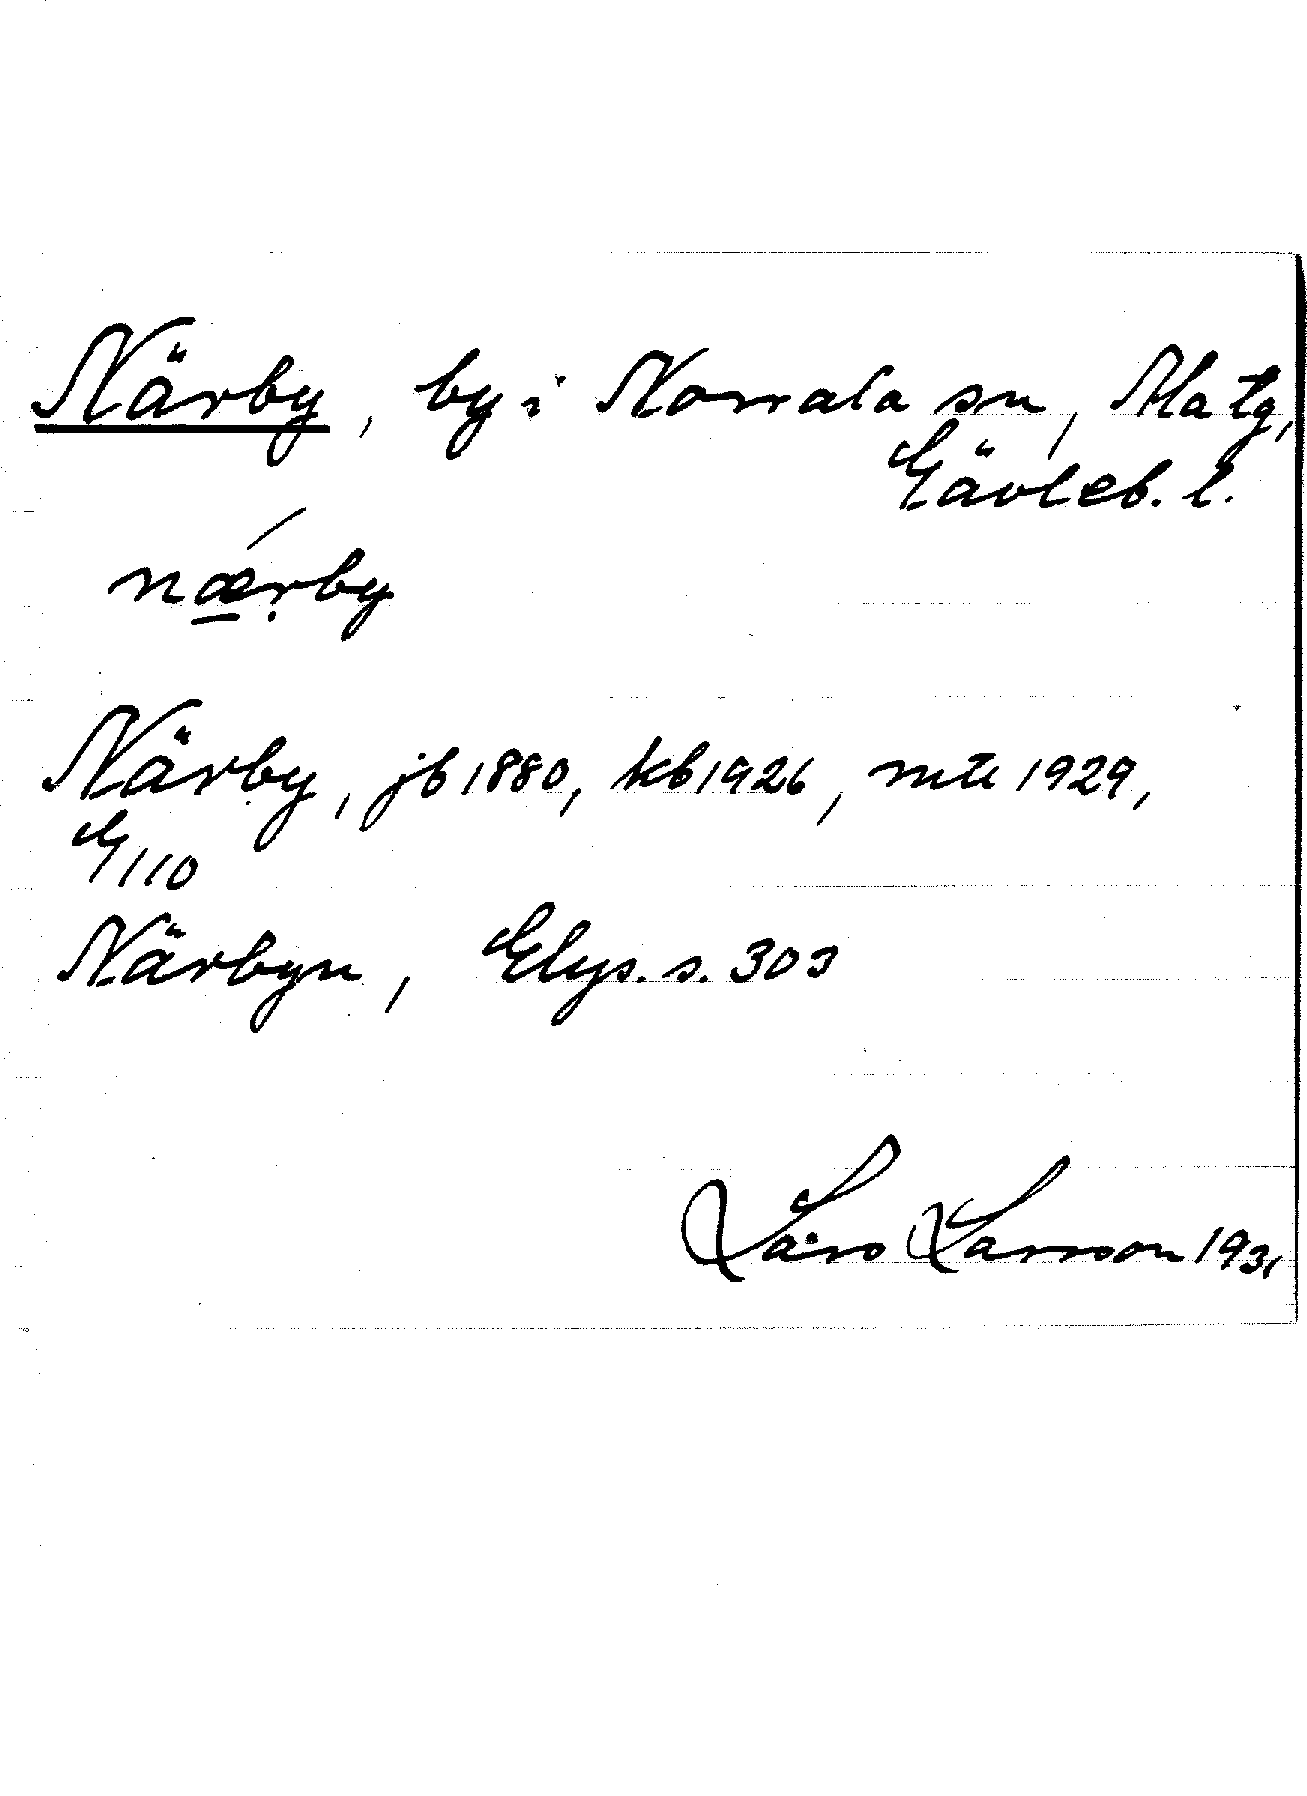 Närby, by i Norrala sn, Ala tg,
Gävleb. l.
nǽrby
Närby, jb 1880, kb 1926, mtl 1929,
G 110
Närbyn, Elys. s. 303
Lars Larsson 1931